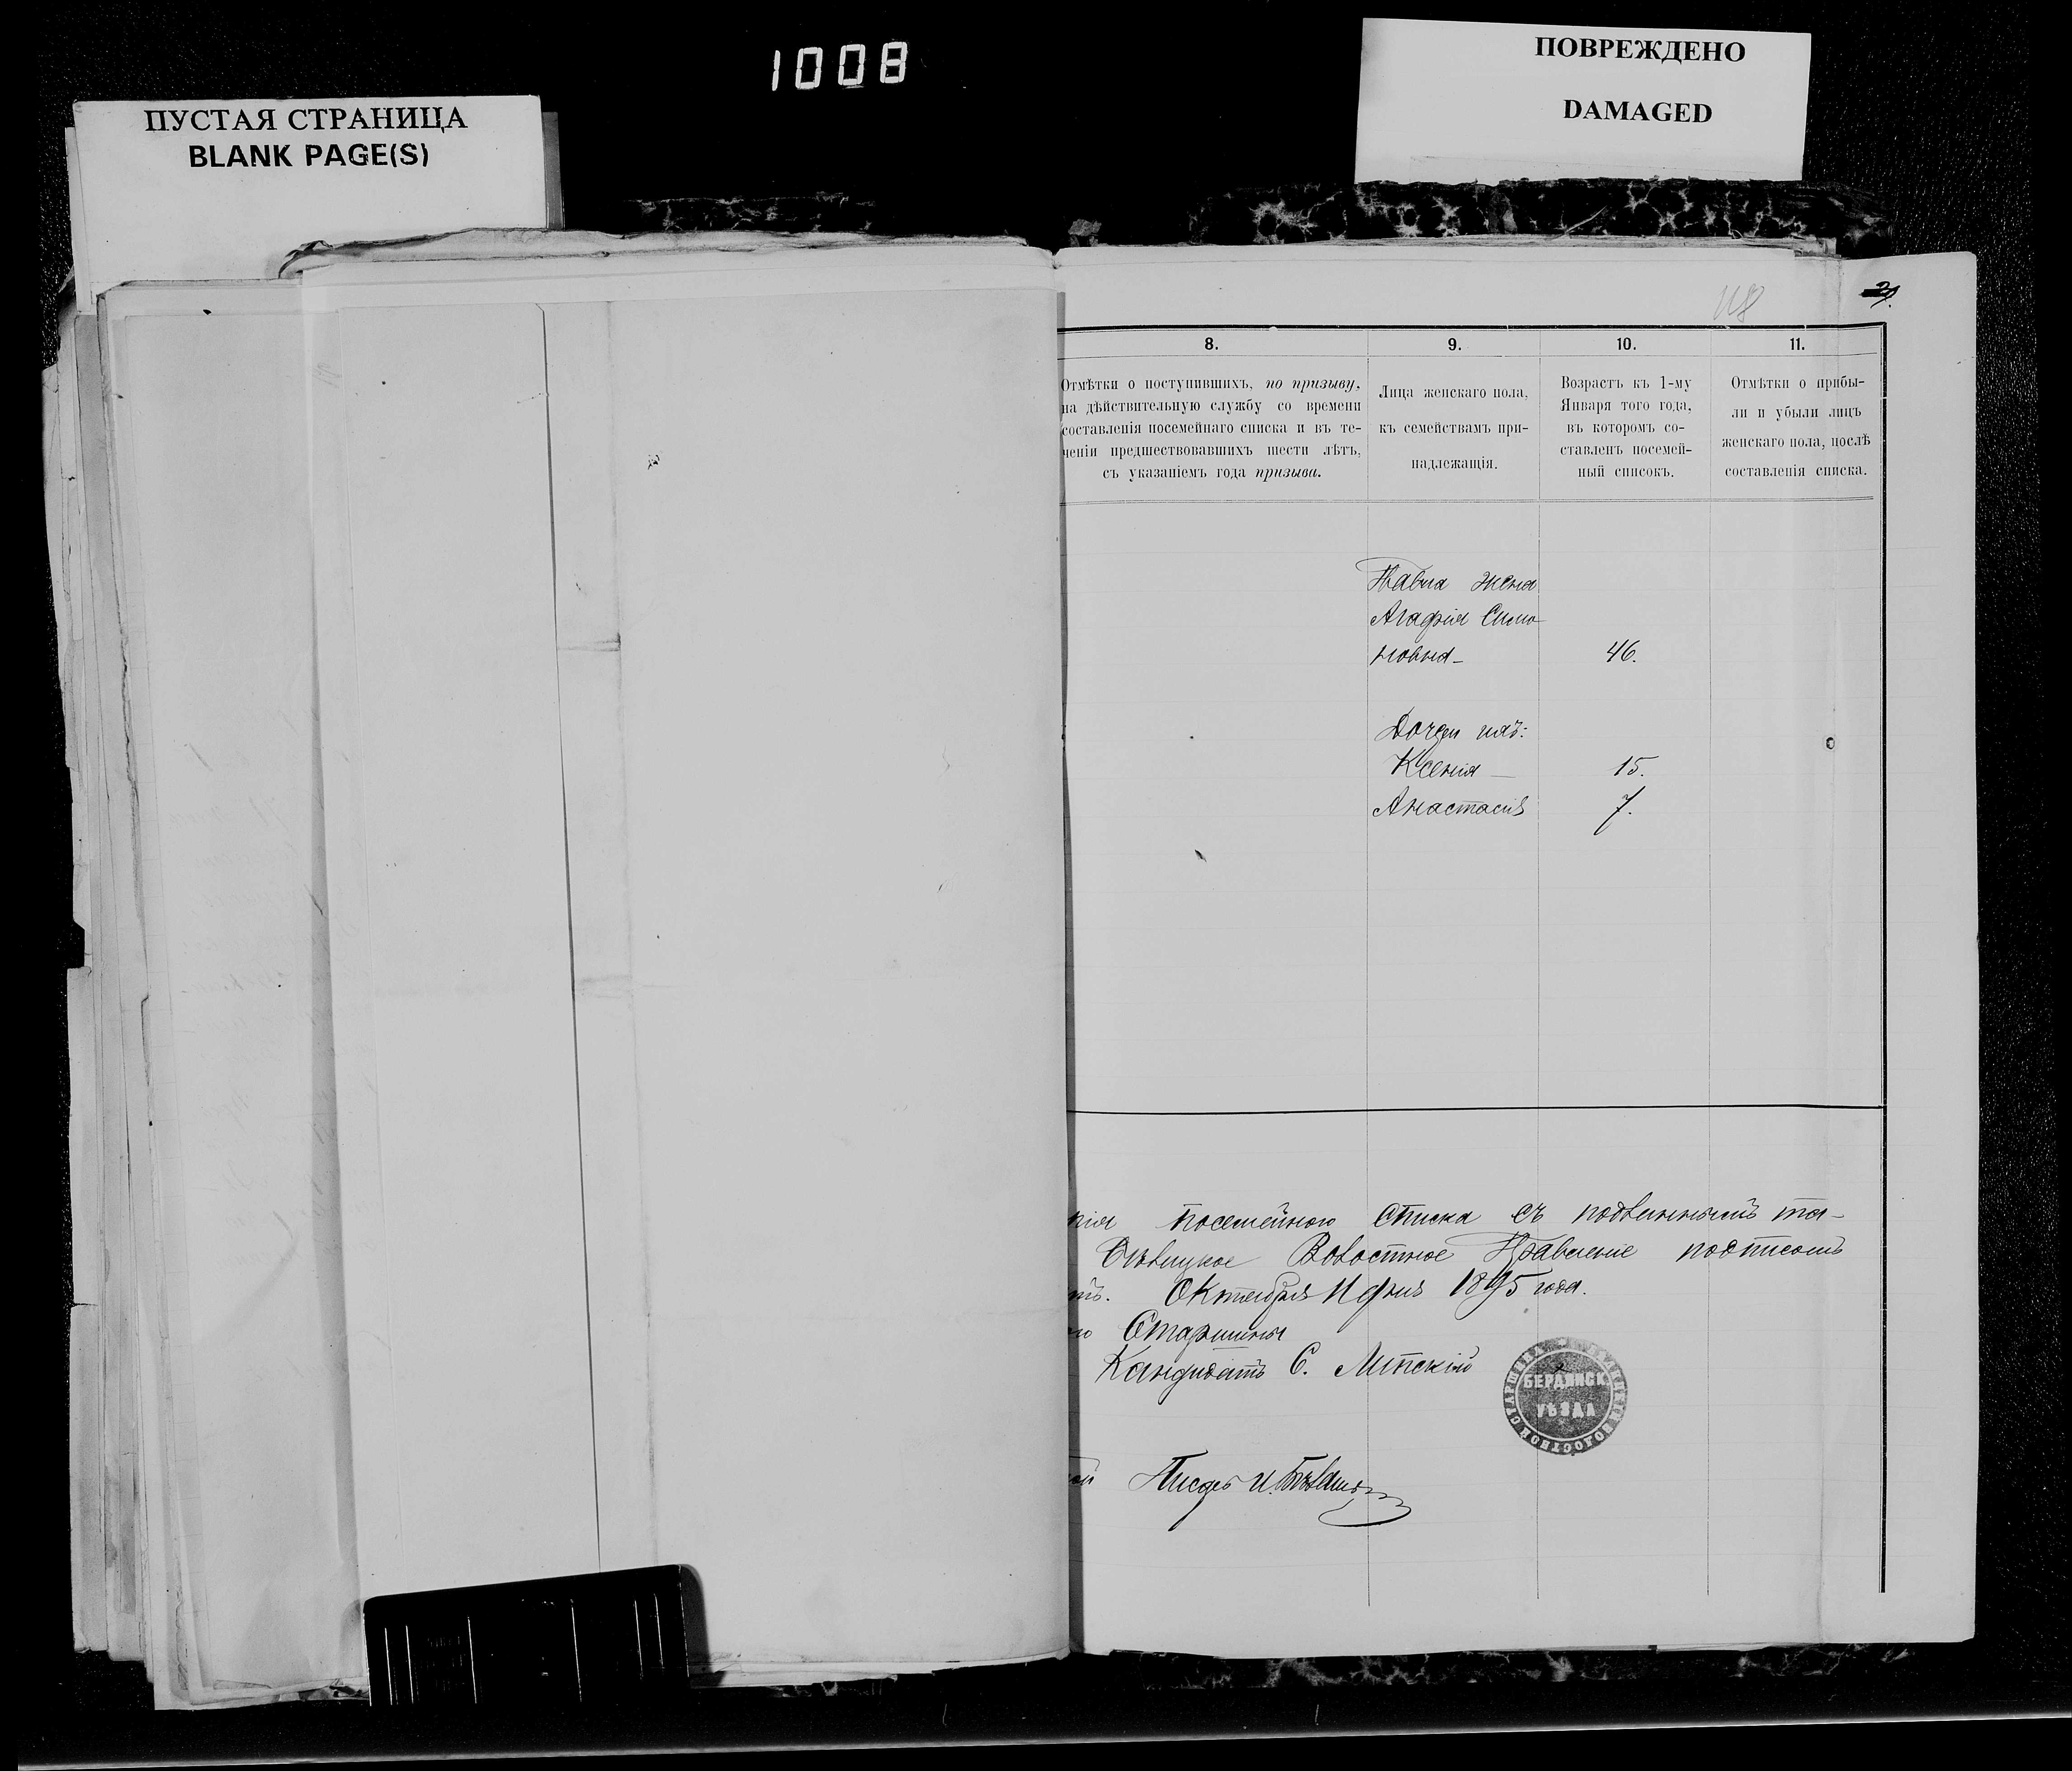 1008
ПОВРЕЖДЕНО
DAMAGED
ПУСТАЯ СТРАНИЦА
BLANK PAGE(S)
118
8.
9.
10.
11.
Отмѣтки о поступившихъ, по призыву,
на дѣйствительную службу со времени
составленія посемейнаго списка и въ те-
ченіи предшествовавшихъ шести лѣтъ,
съ указаніемъ года призыва.
Лица женскаго пола,
къ семействамъ при-
надлежащія.
Возрастъ къ 1-му
Января того года,
въ которомъ со-
ставленъ посемей-
ный списокъ.
Отмѣтки о прибы-
ли и убыли лицъ
женскаго пола, послѣ
составленія списка.
Павла жена
Агафія Симо
новна - 46.
Дочери ихъ:
Ксенія - 15.
Анастасія 7.
посемейного списка съ подлиннымъ
Волостное Правленіе подписомъ
Октября 11 дня 1895 года.
Старшины
Кандидатъ С.
БЕРДЯНСК
УѢЗДА
Писарь И.